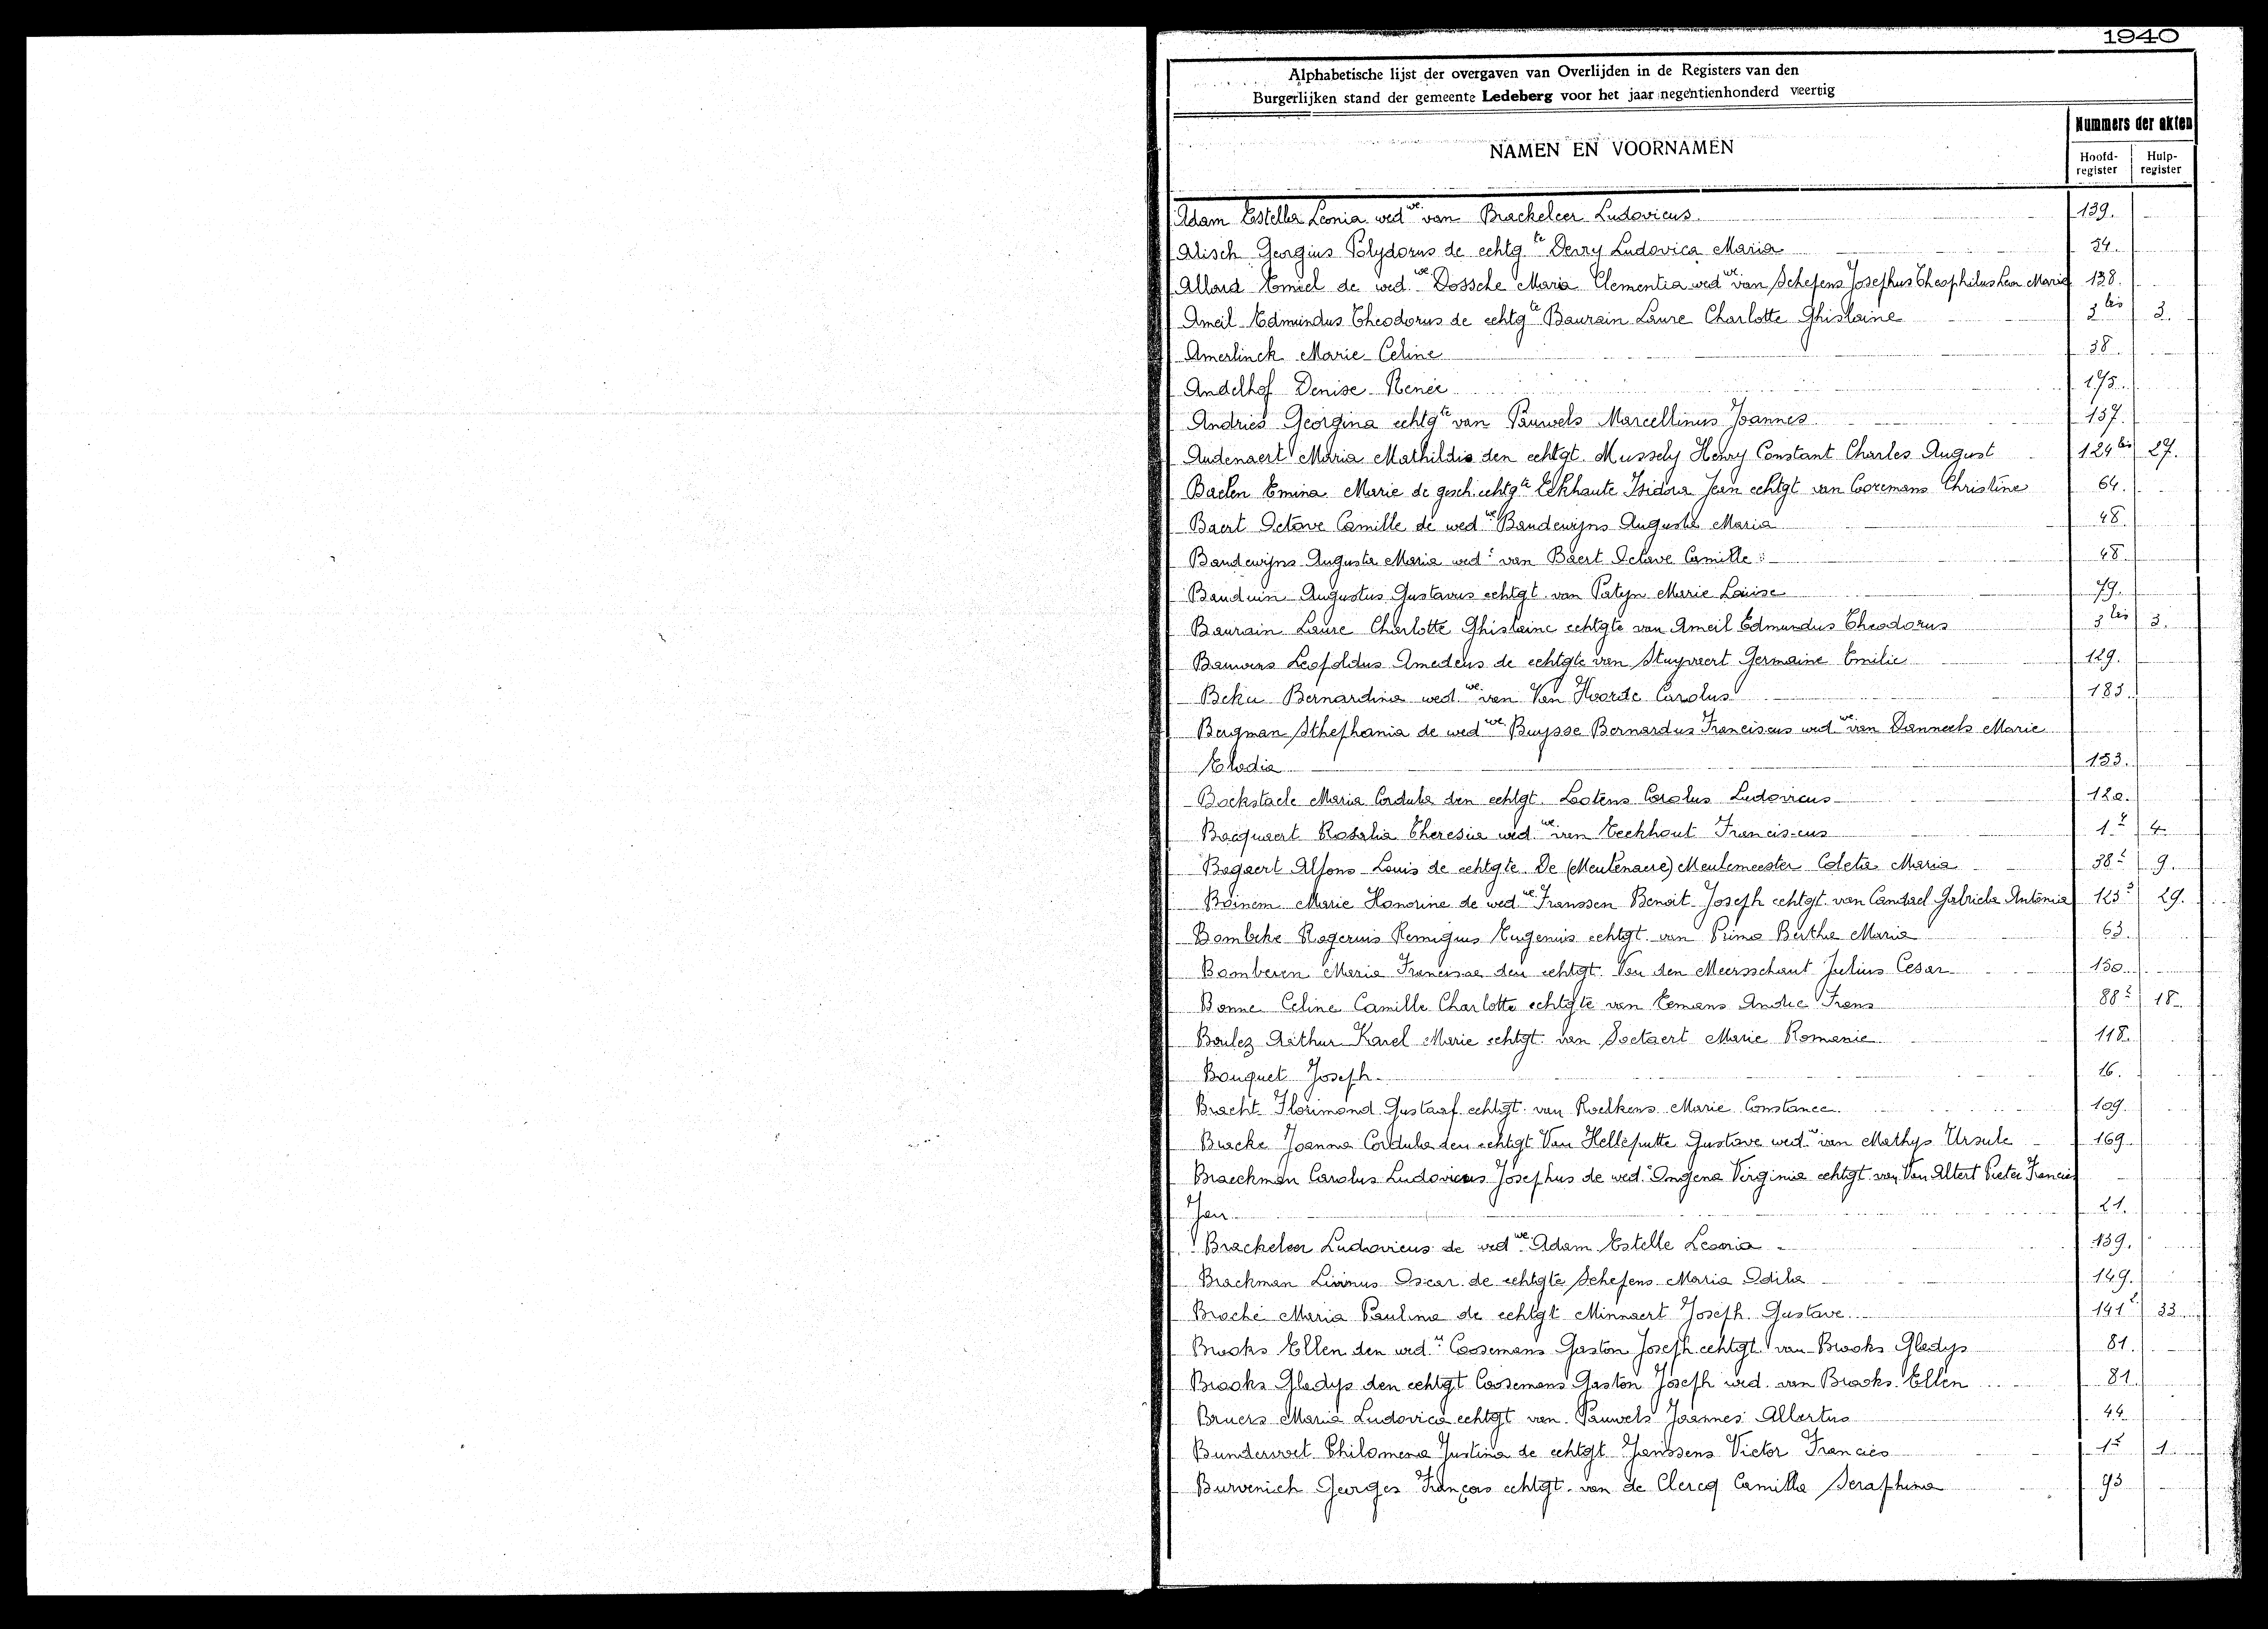 1940
Alphabetische lijst der overgaven van Overlijden in de Registers van den
Burgerlijken stand der gemeente Ledeberg voor het jaar negentienhonderd veertig
NAMEN EN VOORNAMEN
Nummers der akten
Hoofd-register Hulp-register
Adam Estella Leonia wed.we van Brackeleer Ludovicus 139.
Alisch Georgius Polydorus de echtg.te Derry Ludovica Maria 54.
Allard Emiel de wed.we Dossche Maria Clementia wed.we van Schepens Josephus Theophilus Leon Marie 138.
Ameil Edmundus Theodorus de echtg.te Baurain Laure Charlotte Ghislaine 3 bis 3.
Amerlinck Marie Celine 38.
Andelhof Denise Renée 175.
Andries Georgina echtg.te van Pauwels Marcellinus Joannes 157.
Audenaert Maria Mathildis den echtgt. Mussely Henry Constant Charles August 124 bis 27.
Baelen Emina Marie de gesch. echtg.te Eekhaute Isidora Jean echtgt van Cooremans Christine 64.
Baert Octave Camille de wed.we Bandewijns Augusta Maria 48.
Bandewijns Augusta Maria wed.e van Baert Octave Camille 48.
Bauduin Augustus Gustavus echtgt. van Patyn Marie Louise 79.
Baurain Laure Charlotte Ghislaine echtgte van Ameil Edmundus Theodorus 3 bis 3.
Bauwens Leopoldus Amedeus de echtgte van Stuyvaert Germaine Emilie 129.
Beka Bernardina wed.we van Van Hoorde Carolus 183.
Bergman Sthephania de wed.we Buysse Bernardus Franciscus wed.we van Danneels Marie
Elodia 153.
Bockstaele Maria Cordula den echtgt. Lootens Carolus Ludovicus 120.
Bocquaert Rosalia Theresia wed.we van Eeckhout Franciscus 1 2 4
Bogaert Alfons Louis de echtgte De (Meulenaere) Meulemeester Coleta Maria 38 2 9.
Boinem Marie Honorine de wed.we Franssen Benoit Joseph echtgt. van Candael Gabriela Antonia 123 2 29.
Bombeke Rogerius Remigius Eugenius echtgt. van Primo Bertha Maria 63.
Bomberen Maria Francisca den echtgt. Van den Meersschaut Julius Cesar 150.
Bonne Celine Camille Charlotte echtgte van Eemans Andre Frans 88 2 18.
Boulez Arthur Karel Marie echtgt. van Soetaert Marie Romanie 118.
Bouquet Joseph 16.
Bracht Florimond Gustaaf echtgt. van Roelkens Marie Constance 109.
Bracke Joanna Cordula den echtgt Van Helleputte Gustave wed.w van Mathys Ursule 169.
Braeckman Carolus Ludovicus Josephus de wed.e Ongena Virginia echtgt. van Van Altert Pieter Francies
Jan 21.
Brackeleer Ludovicus de wed.we Adam Estelle Leonia 139.
Brackman Livinus Oscar de echtgte Schepens Maria Odila 149.
Broché Maria Paulina de echtgt Minnaert Joseph Gustave 141 2 33
Brooks Ellen den wed.r Coosemans Gaston Joseph echtgt van Brooks Gladys 81.
Brooks Gladys den echtgt Coosemans Gaston Joseph wed. van Brooks Ellen 81.
Bruers Maria Ludovica echtgt van Pauwels Joannes Albertus 44
Bundervoet Philomena Justina de echtgt Janssens Victor Francies 1 2 1
Burvenich Georges François echtgt. van de Clercq Camilla Seraphina 93